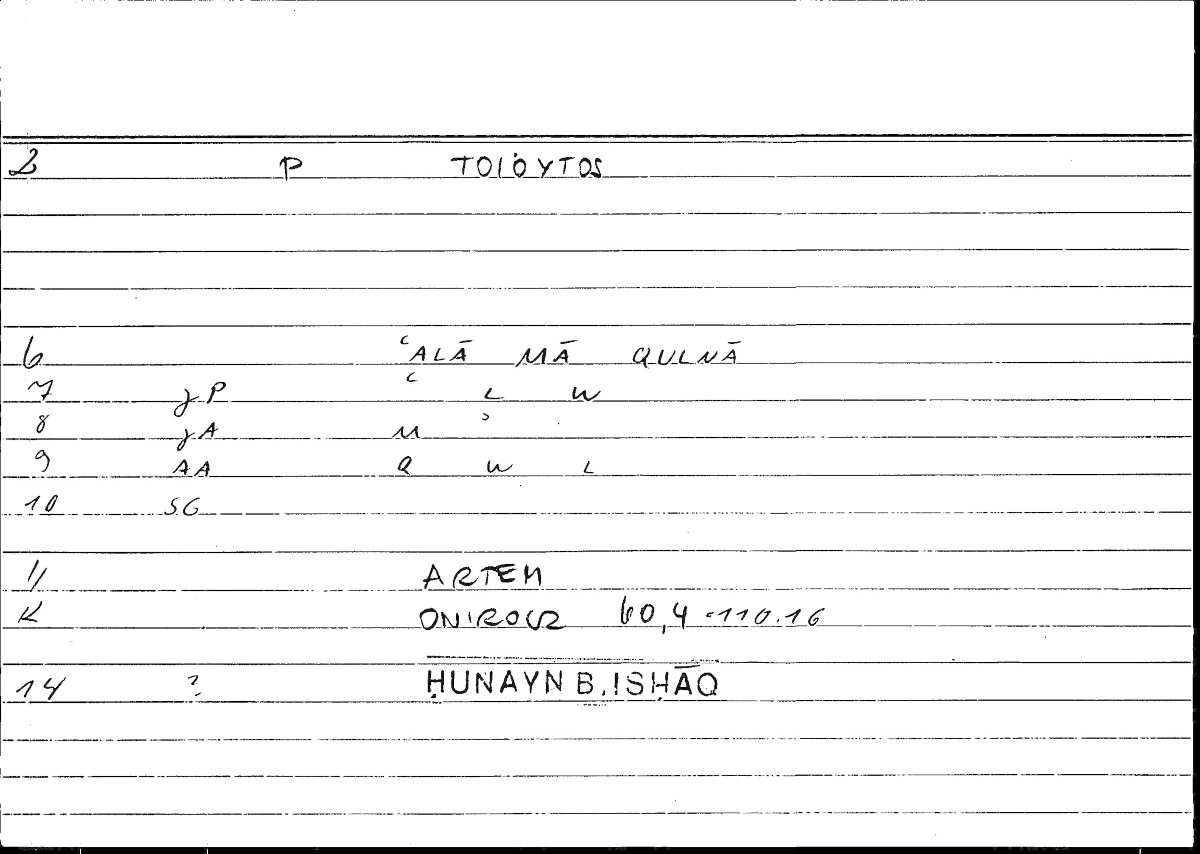 2 P ΤΟΙΌΥΤΟΣ
6 ʿALĀ MĀ QULNĀ
7 JP ʿ L W
8 JA M ʾ
9 AA Q W L
10 SG
11 ARTEM
12 ONIROCR 60,4 - 110.16
14 ? ḤUNAYN B. ISḤĀQ